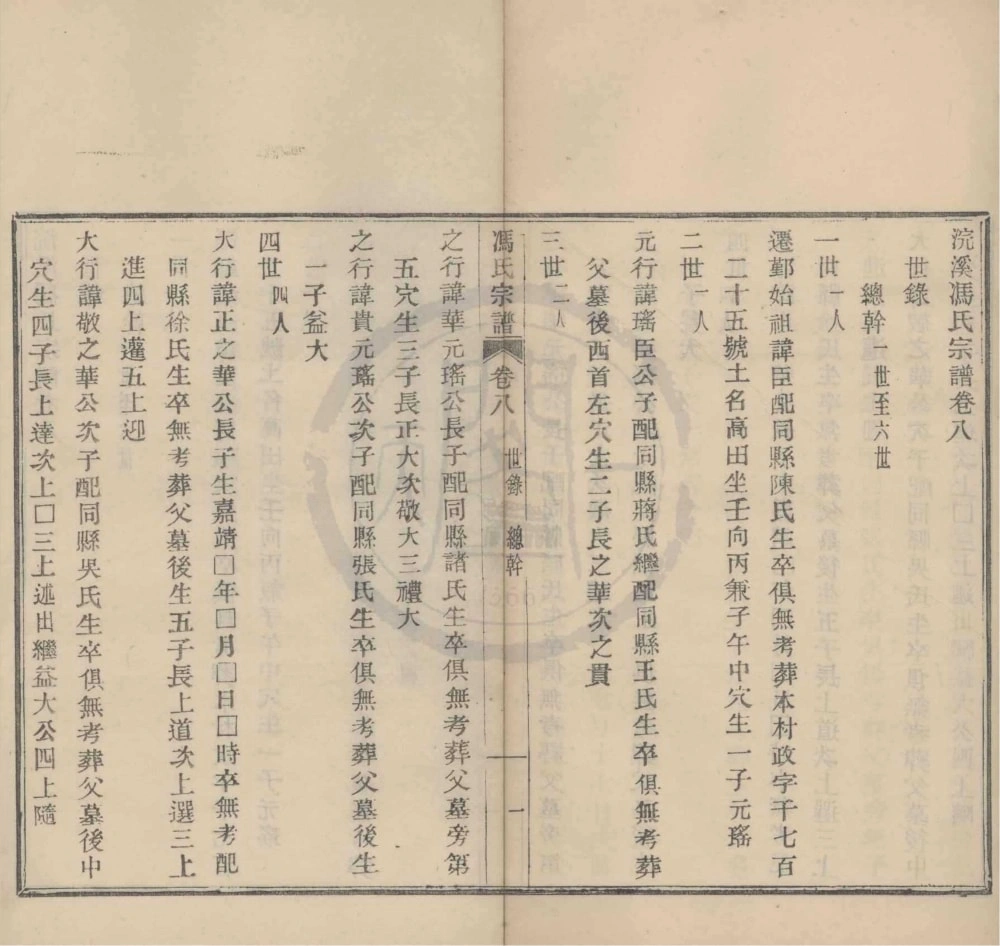 浣溪馮氏宗譜卷八
世錄
總幹一世至六世
一世一人
遷鄞始祖諱臣配同縣陳氏生卒俱無考葬本村政字千七百
二十五號土名高田坐壬向丙兼子午中穴生一子元瑤
二世一人
元行諱瑤臣公子配同縣蔣氏繼配同縣王氏生卒俱無考葬
父墓後西首左穴生二子長之華次之貫
三世二人
馮氏宗譜 卷八 世錄 總幹 一
之行諱華元瑤公長子配同縣諸氏生卒俱無考葬父墓旁第
五穴生三子長正大次敬大三禮大
之行諱貴元瑤公次子配同縣張氏生卒俱無考葬父墓後生
一子益大
四世四人
大行諱正之華公長子生嘉靖□年□月□日□時卒無考配
同縣徐氏生卒無考葬父墓後生五子長上道次上選三上
進四上邁五上迎
大行諱敬之華公次子配同縣吳氏生卒俱無考葬父墓後中
穴生四子長上達次上□三上述出繼益大公四上隨